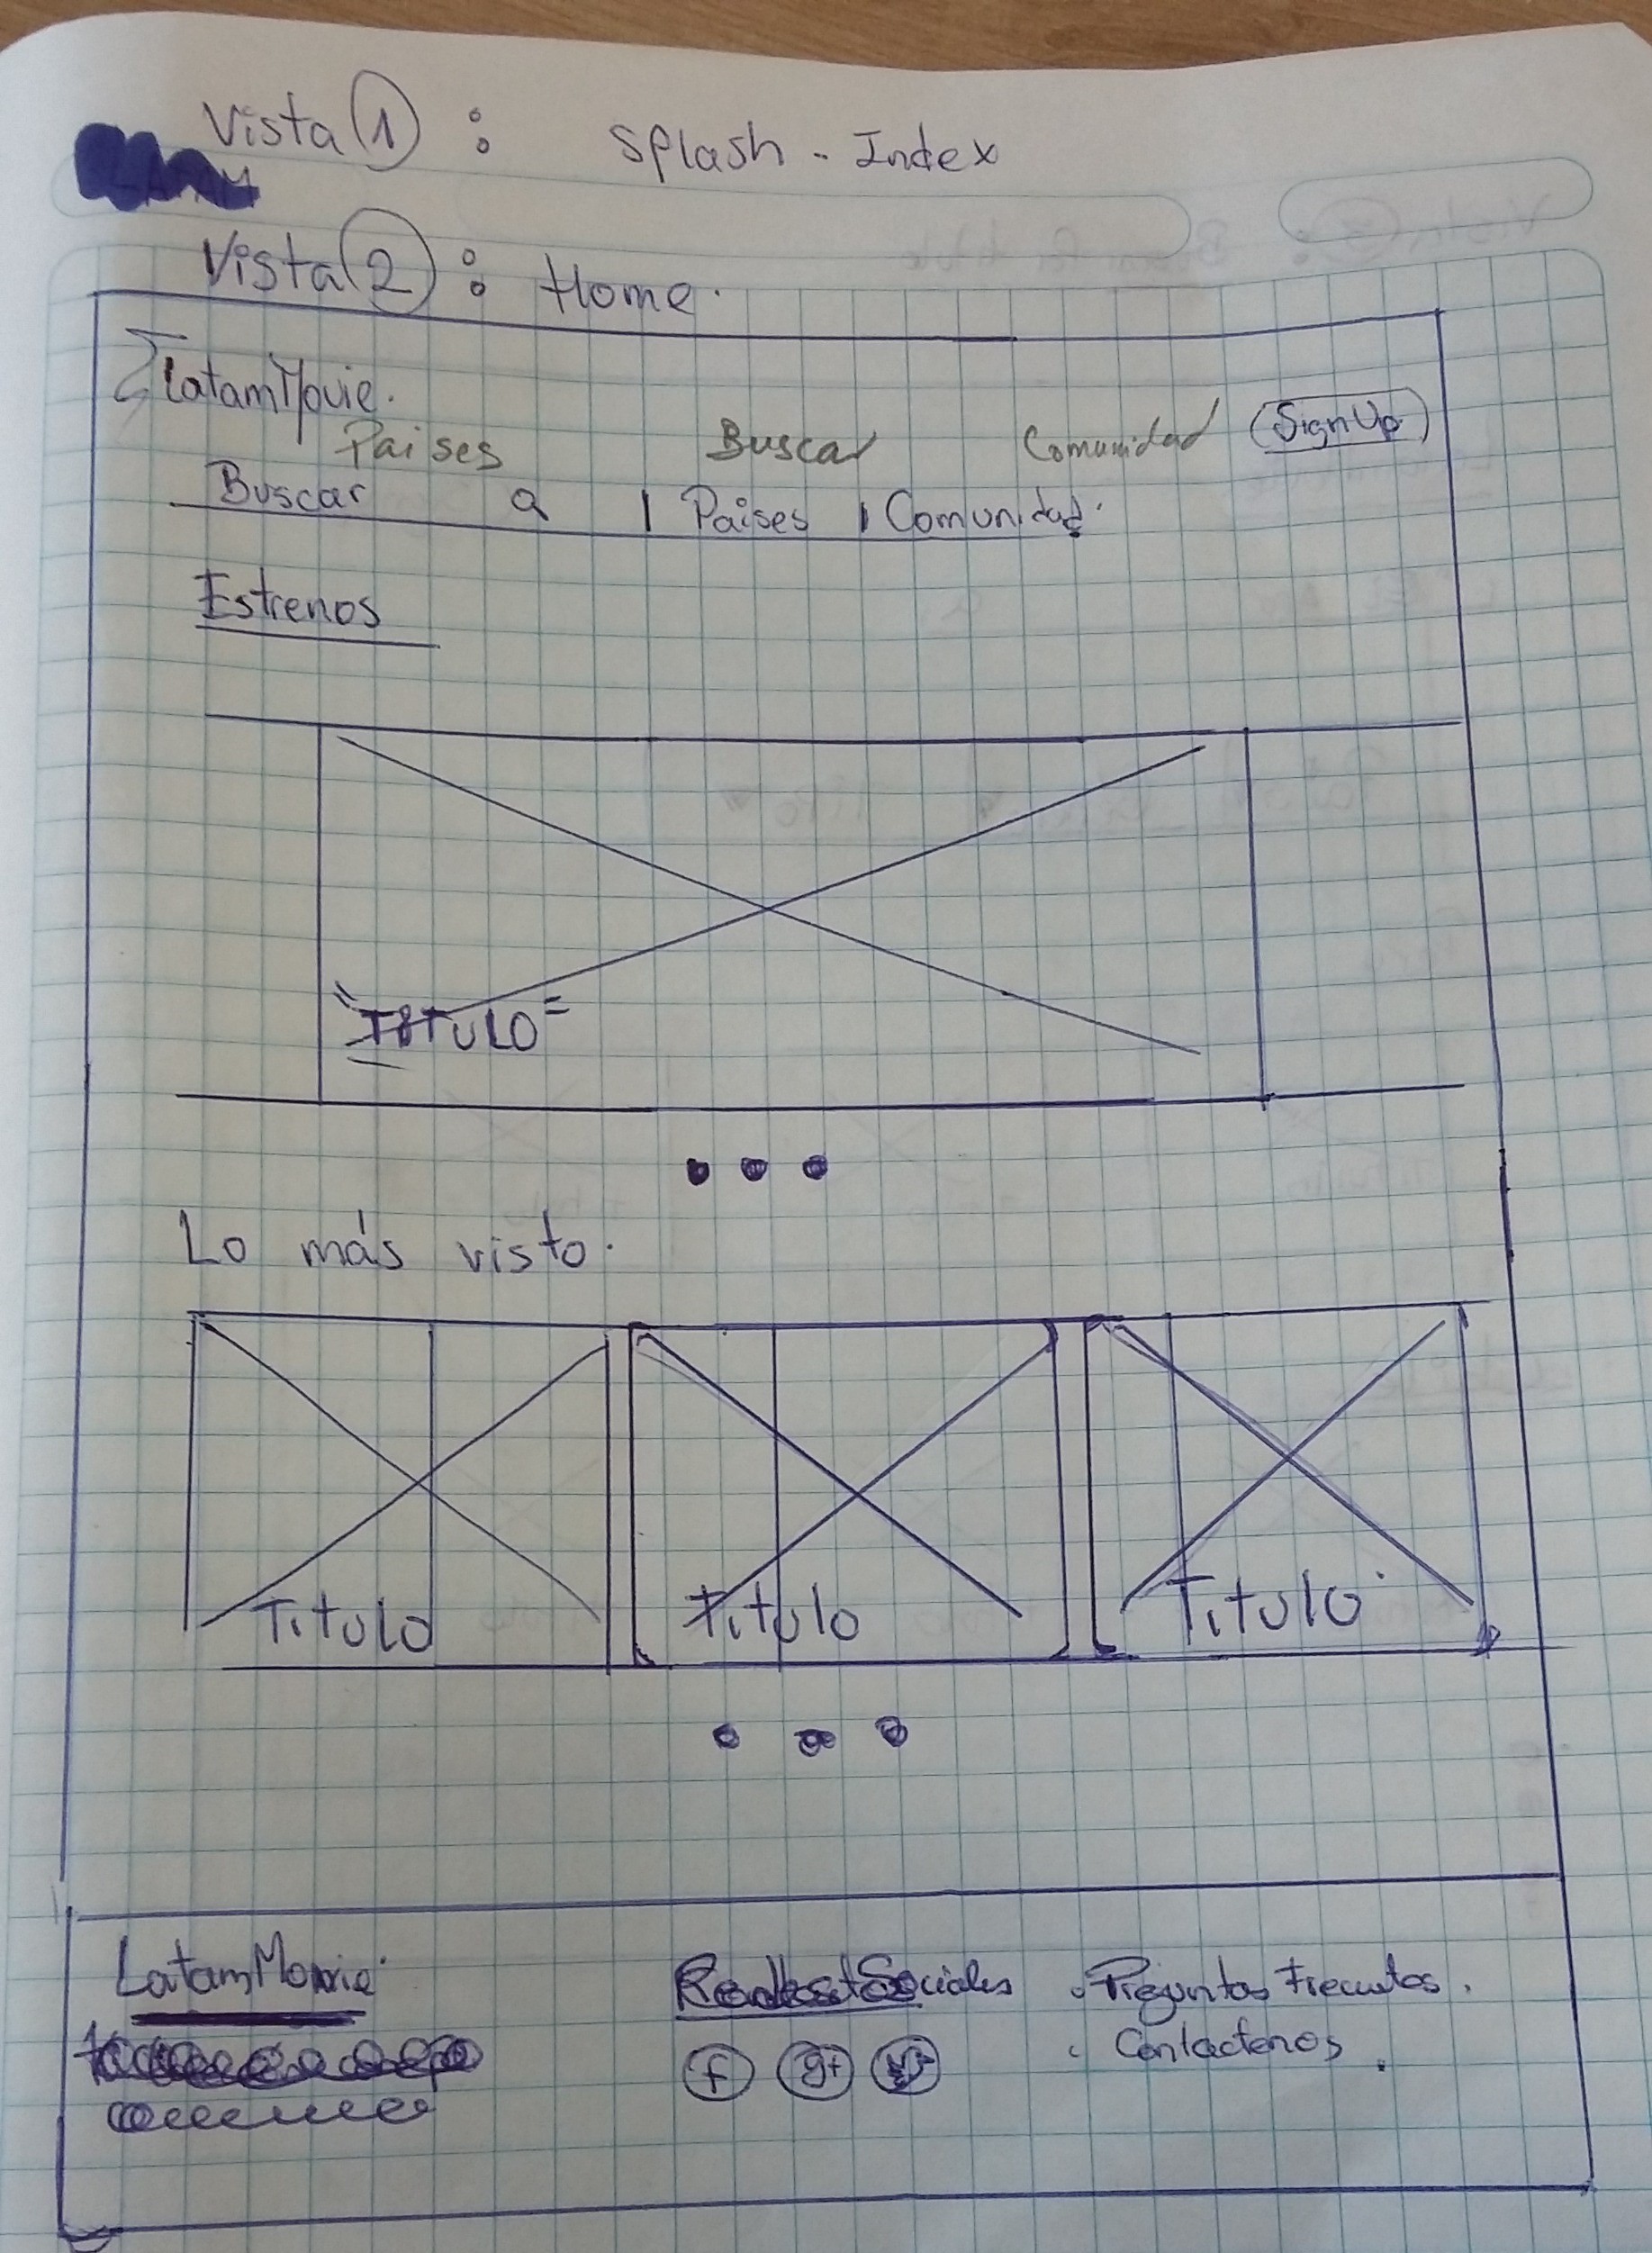 Vista 1 : Splash - Index
Vista 2 : Home.
LatamMovie.
Paises Buscar Comunidad SignUp
Buscar | Paises | Comunidad.
Estrenos
"TITULO"
Lo más visto.
Titulo Titulo Titulo
LatamMovie Redes Sociales . Preguntas Frecuetes .
f g+ . Contactenos .